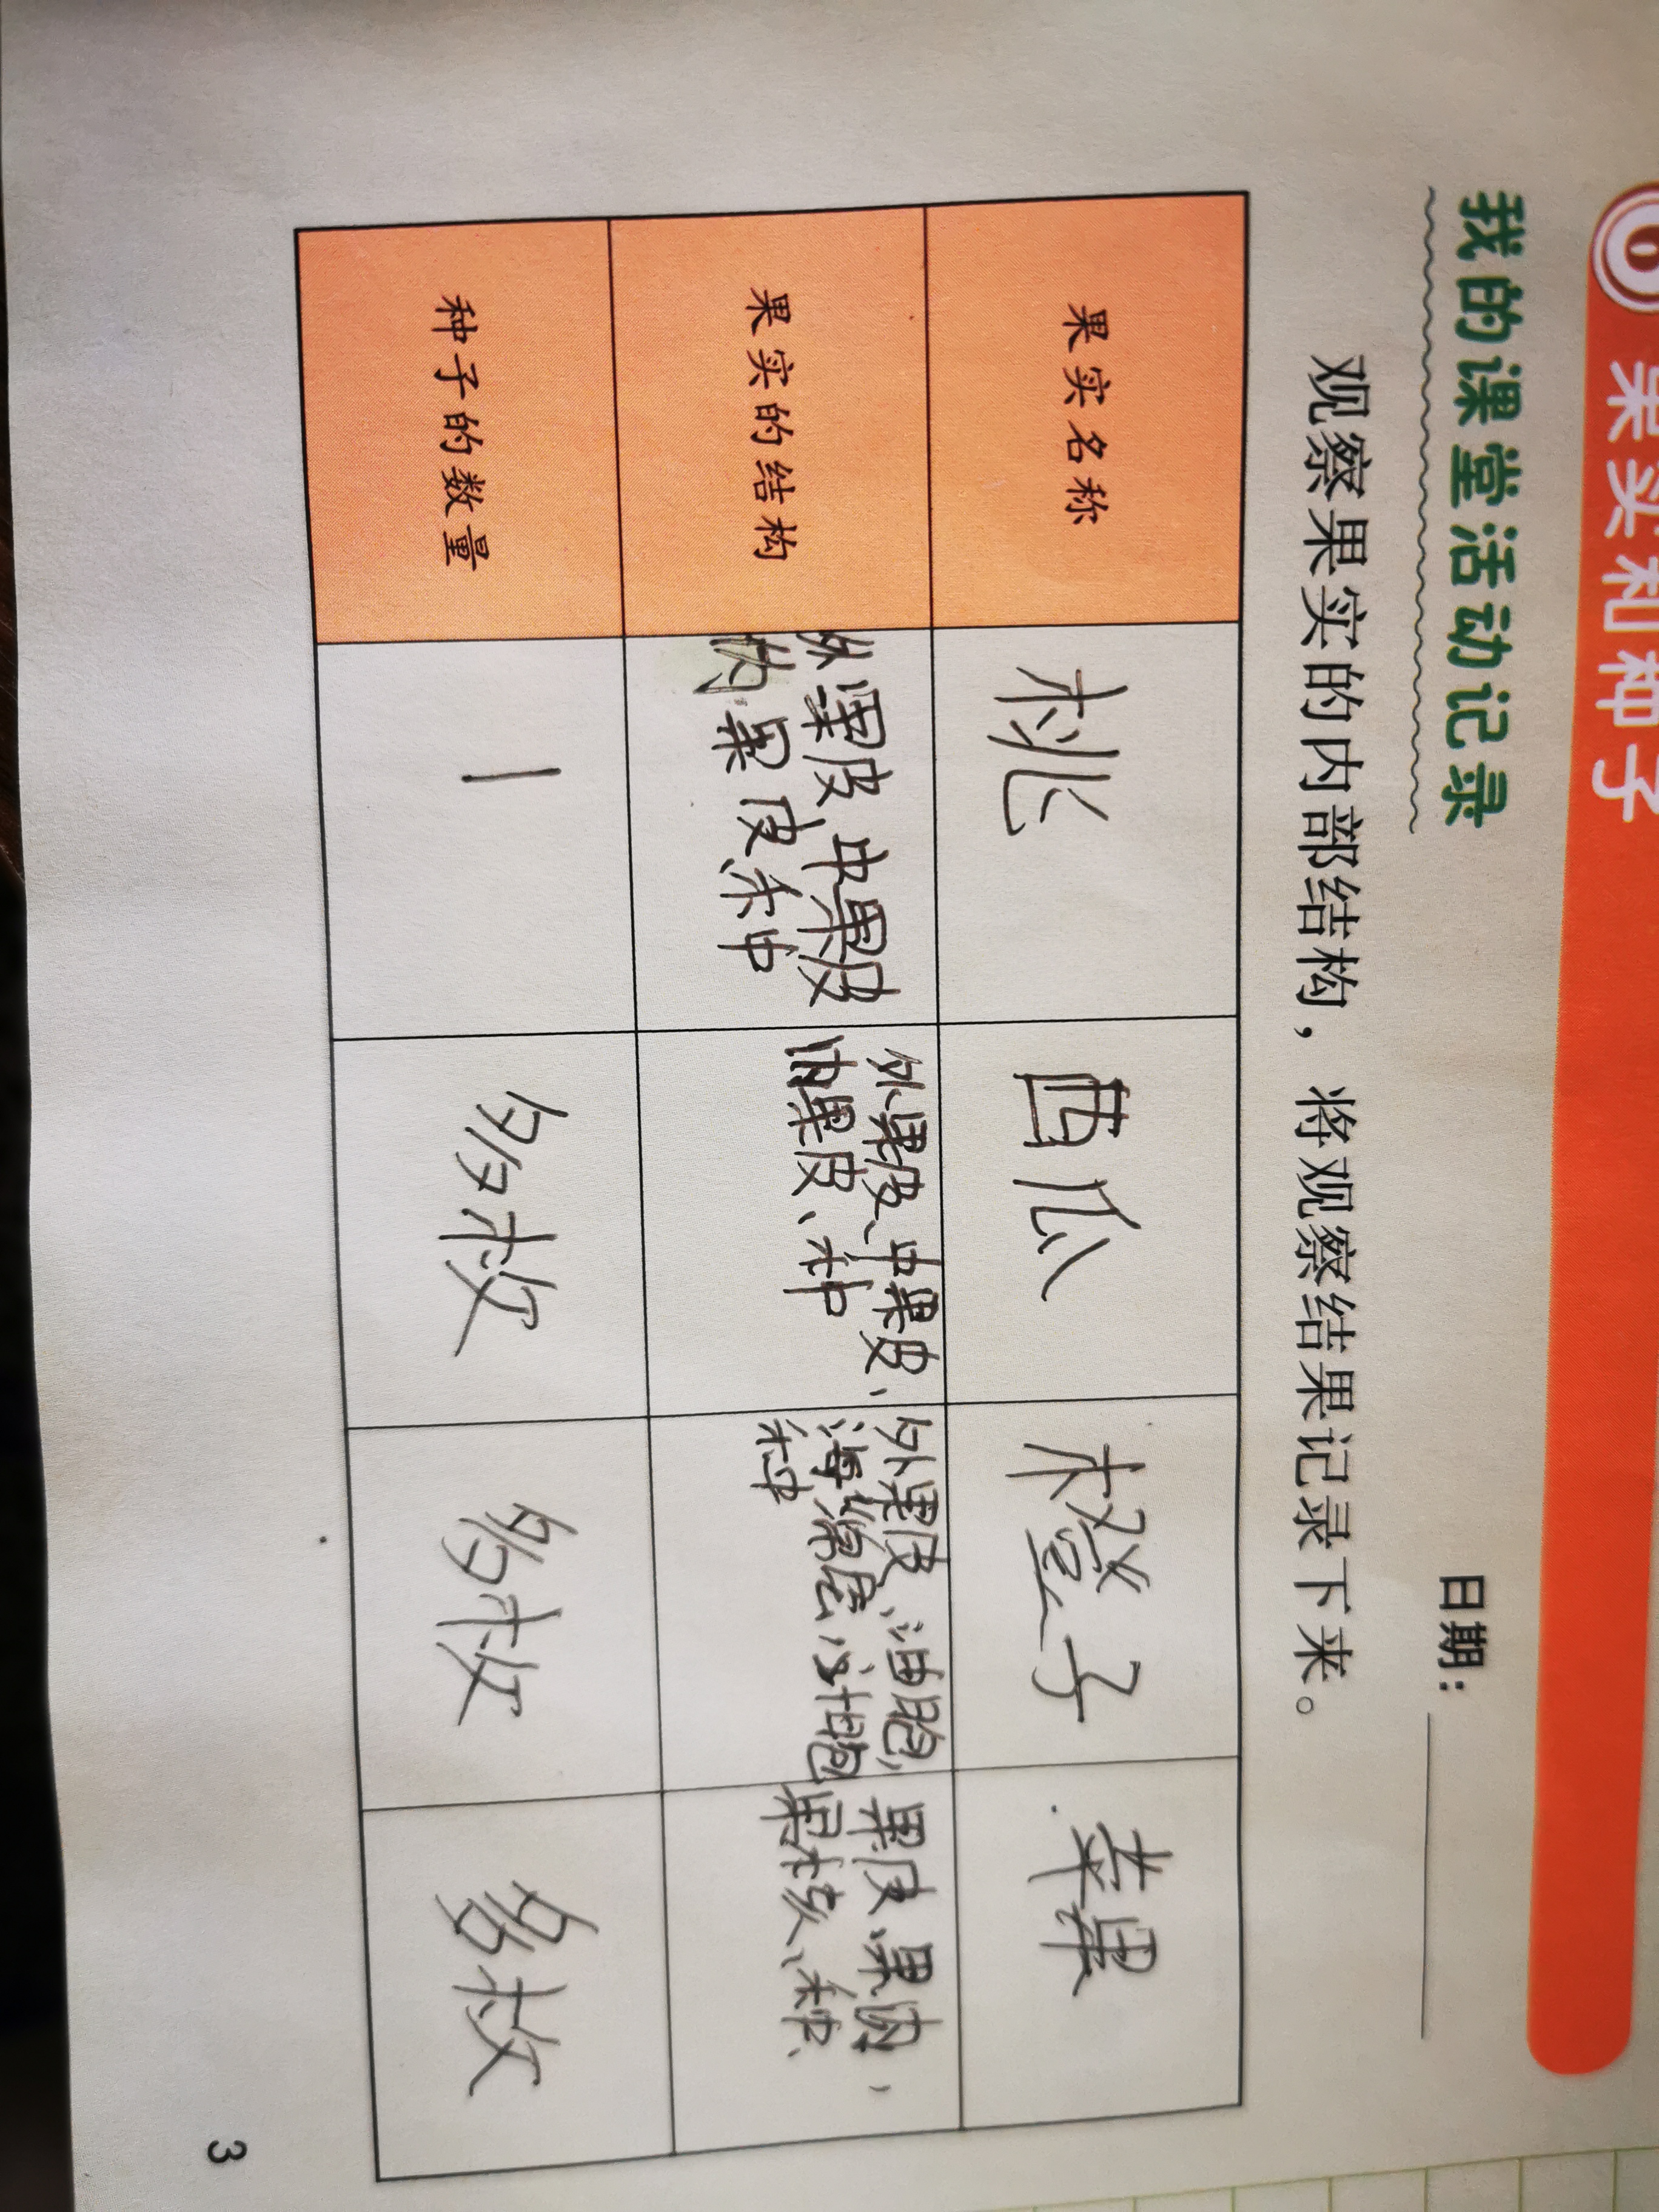 6 果实和种子
我的课堂活动记录
日期：
观察果实的内部结构，将观察结果记录下来。
果实名称
桃
西瓜
橙子
苹果
果实的结构
外果皮 中果皮
内果皮、种
外果皮、中果皮、
内果皮、种
外果皮、油胞,
海绵层,汁胞
种
果皮、果肉,
果核、种、
种子的数量
一
多枚
多枚
多枚
3